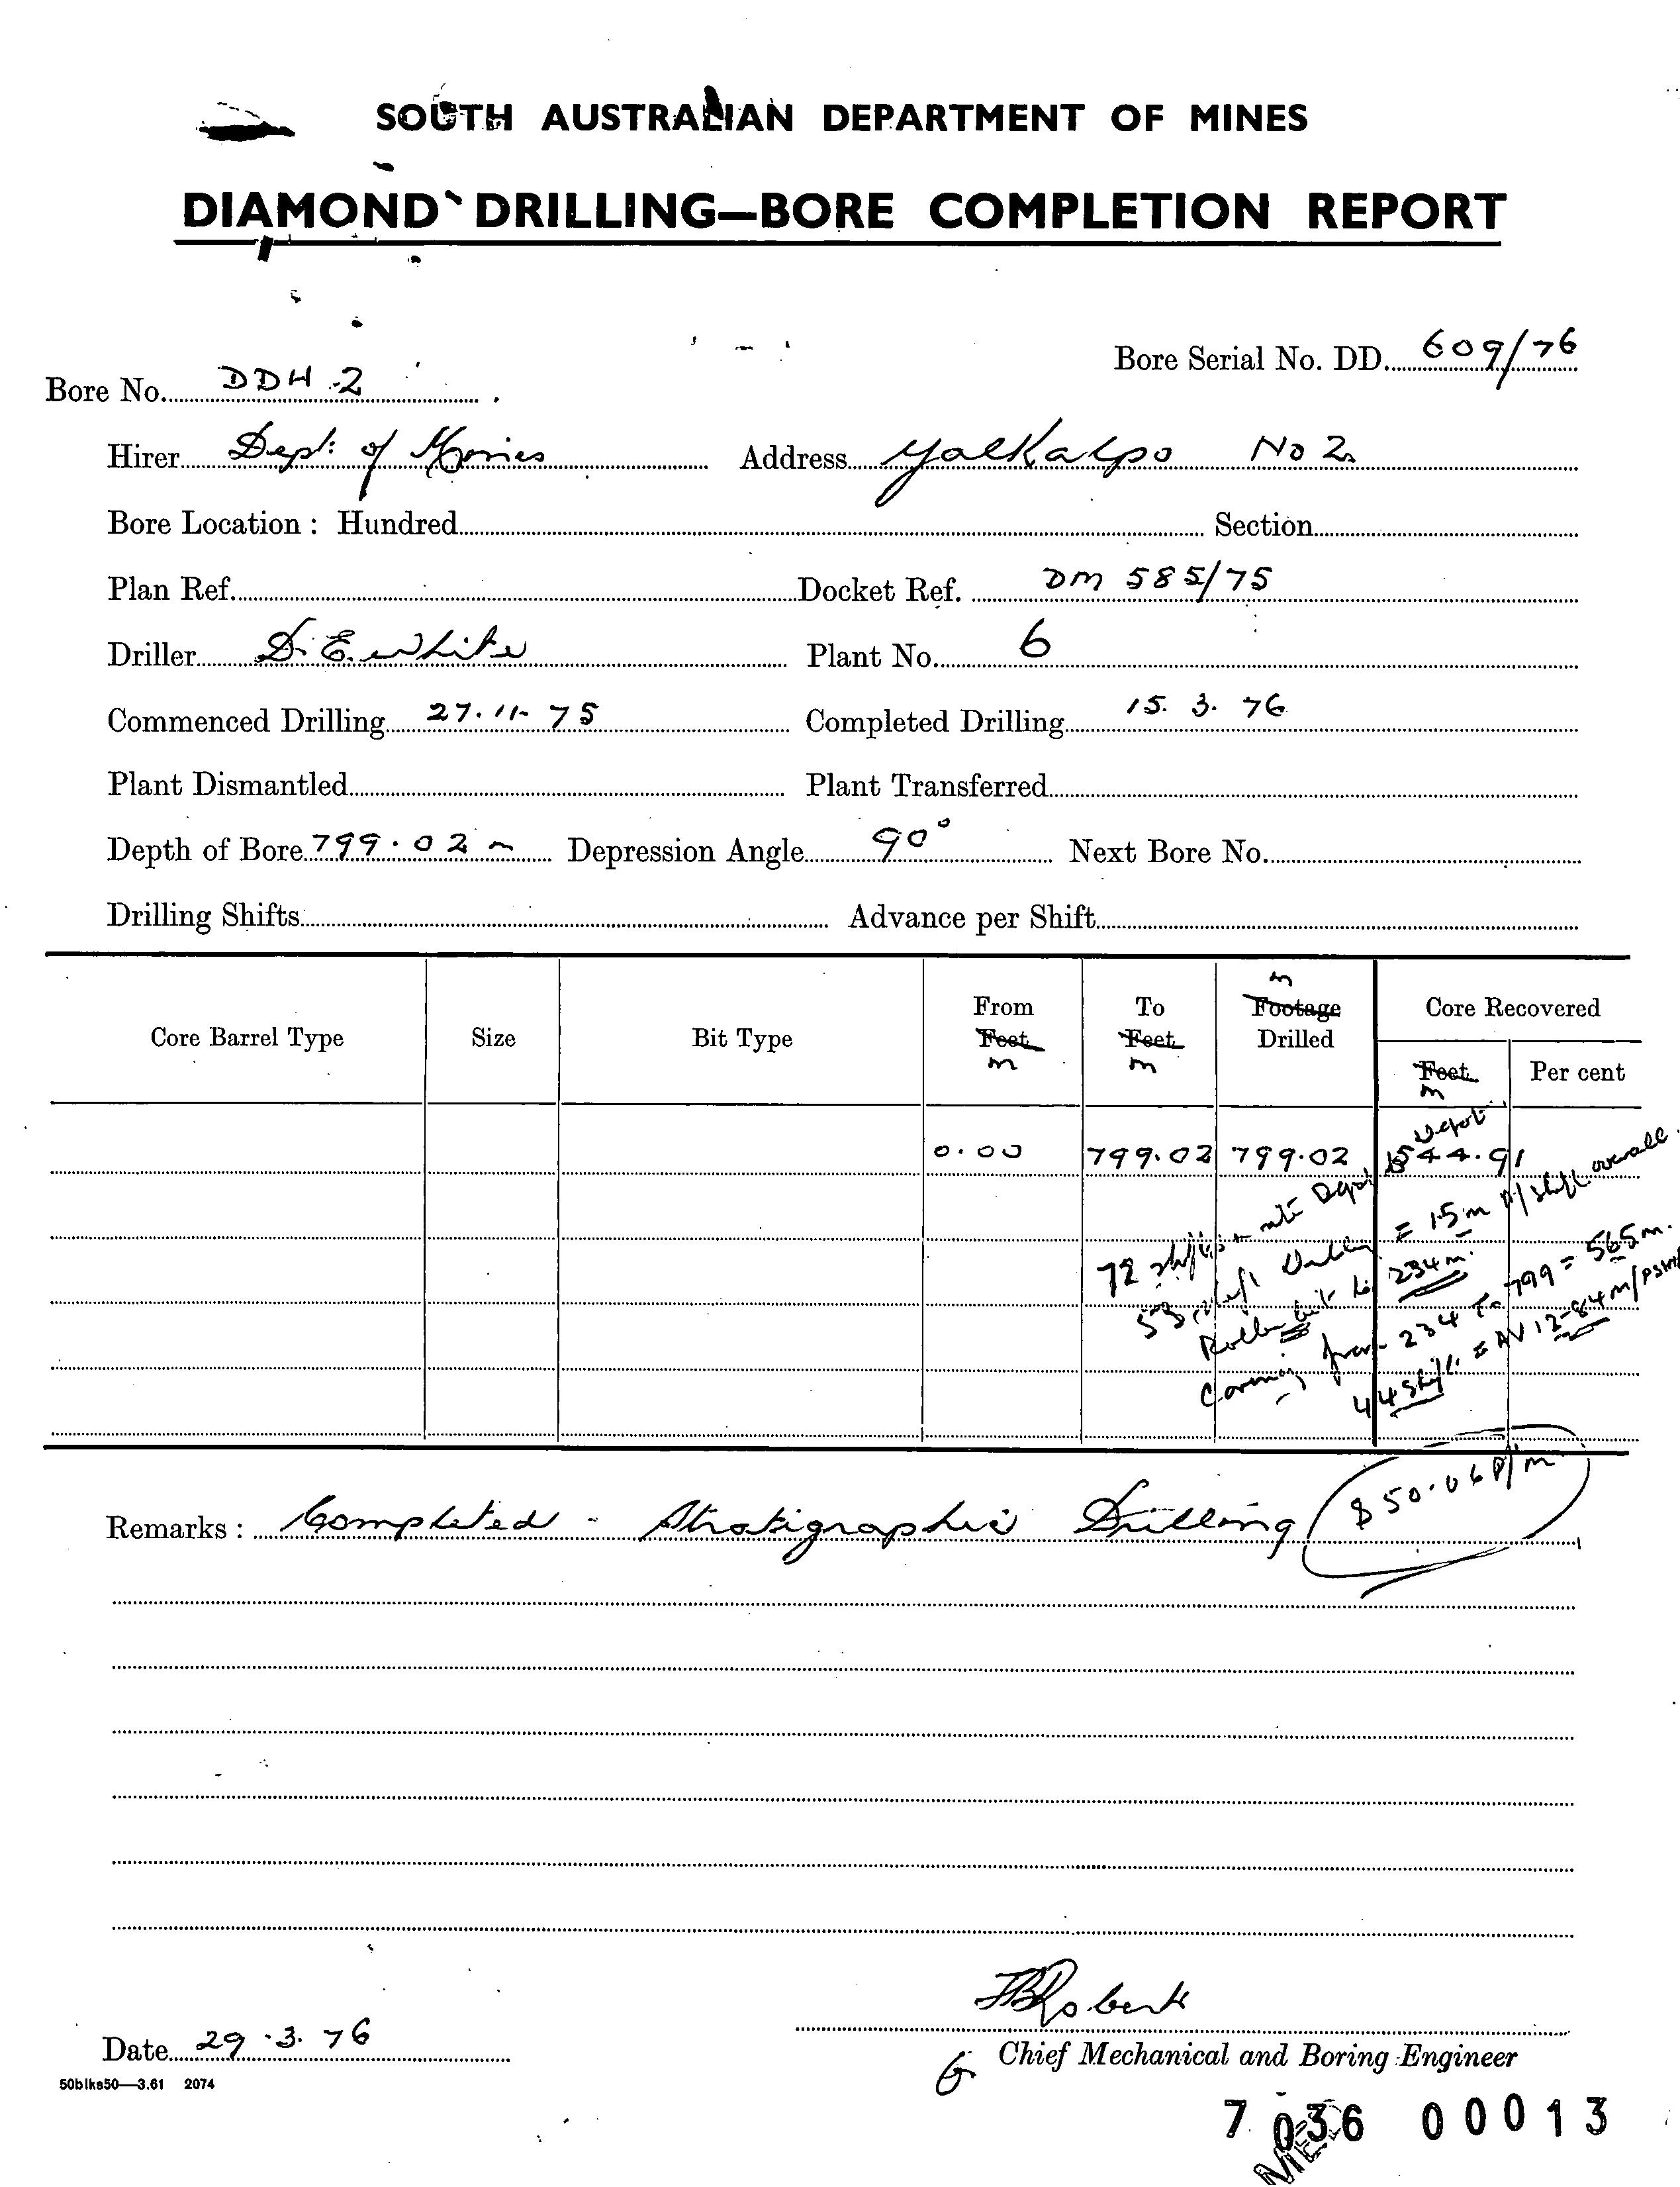 SOUTH AUSTRALIAN DEPARTMENT OF MINES
DIAMOND DRILLING—BORE COMPLETION REPORT
Bore Serial No. DD. 609/76
Bore No. DDH 2
Hirer Dept. of Mines Address Yalkalpo No 2
Bore Location : Hundred Section
Plan Ref. Docket Ref. DM 585/75
Driller D. E. White Plant No. 6
Commenced Drilling 27.11.75 Completed Drilling 15. 3. 76
Plant Dismantled Plant Transferred
Depth of Bore 799.02 m Depression Angle 90° Next Bore No.
Drilling Shifts Advance per Shift
Core Barrel Type Size Bit Type From Feet m To Feet m m Footage Drilled Core Recovered
Feet m Per cent
Depot
0.00 799.02 799.02 544.91
72 shifts Depot
53 shift Drilling = 15 m p/shift overall.
Roller bit to 234 m.
Coring from 234 to 799 = 565 m.
44 shifts = AV 12-84 m/
$50.06 P/m
Remarks : Completed - Stratigraphic Drilling
Date 29.3.76
Chief Mechanical and Boring Engineer
50blks50—3.61 2074
7 036 00013